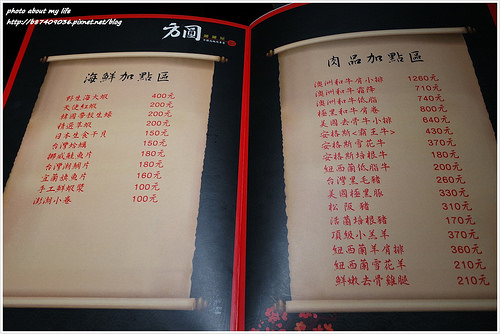 photo about my life
http://b87409036.pixnet.net/blog
方圓
海鮮加點區
野生海大蝦 400元
天使紅蝦 200元
韓國帶殼生蠔 200元
精選草蝦 200元
日本生食干貝 150元
台灣蛤蠣 150元
挪威鮭魚片 180元
台灣潮鯛片 180元
宜蘭旗魚片 160元
手工鮮蝦漿 100元
澎湖小卷 100元
肉品加點區
澳洲和牛肩小排 1260元
澳洲和牛霜降 710元
澳洲和牛低脂 740元
極黑和牛肩卷 800元
美國去骨牛小排 640元
安格斯<霸王牛> 430元
安格斯雪花牛 370元
安格斯培根牛 180元
紐西蘭低脂牛 200元
台灣黑毛豬 260元
美國極黑豚 330元
松阪豬 310元
活菌培根豬 170元
頂級小羔羊 370元
紐西蘭羊肩排 360元
紐西蘭雪花羊 210元
鮮嫩去骨雞腿 210元